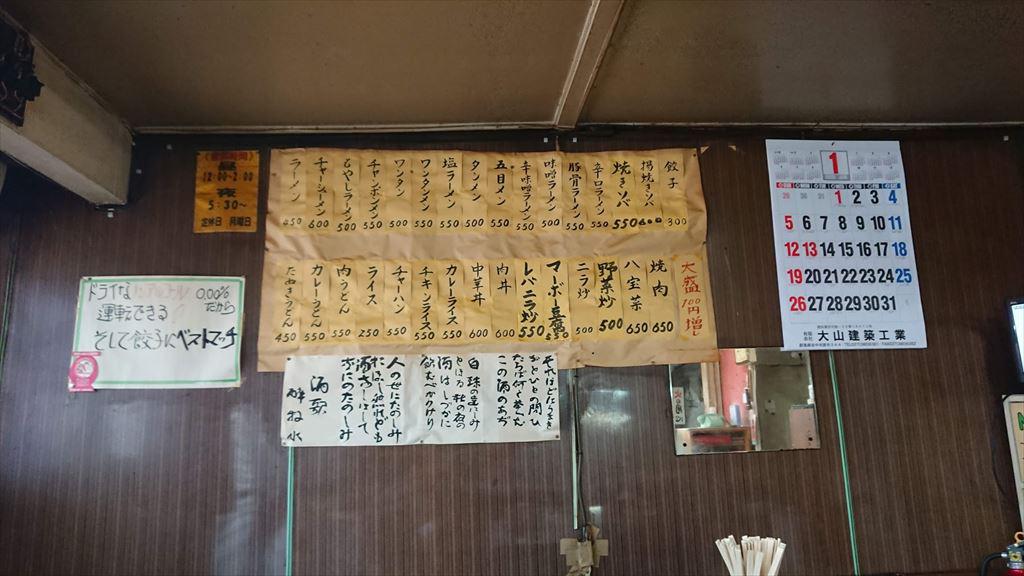 昼
12:00~2:00
夜
5:30~
定休日 月曜日
ドライな 0.00%
だから
運転できる
そして餃子にベストマッチ
餃子 300
揚焼きソバ 600
焼きソバ 550
辛口ラーメン 550
豚骨ラーメン 550
味噌ラーメン 550
辛味噌ラーメン 550
五目メン 500
タンメン 500
塩ラーメン 500
ワンタンメン 550
ワンタン 400
チャンポンメン 550
もやしラーメン 500
チャーシューメン 600
ラーメン 450
大盛100円増し
焼肉 650
八宝菜 650
野菜炒 500
ニラ炒 500
マーボー豆腐 550
レバニラ炒 550
肉丼 600
中華丼 600
カレーライス 550
チキンライス 550
チャーハン 500
ライス 250
肉うどん 550
カレーうどん 550
たぬきうどん 450
それほどにうまき
かとひとの問ひ
たらば何と答へん
この酒のあぢ
白珠の歯にしみ
とほる秋の夜の
酒はしづかに
飲むべかりけり
人の世にたのしみ
酒
酒歌
牧水
1
1 2 3 4
5 6 7 8 9 10 11
12 13 14 15 16 17 18
19 20 21 22 23 24 25
26 27 28 29 30 31
有限会社 大山建築工業